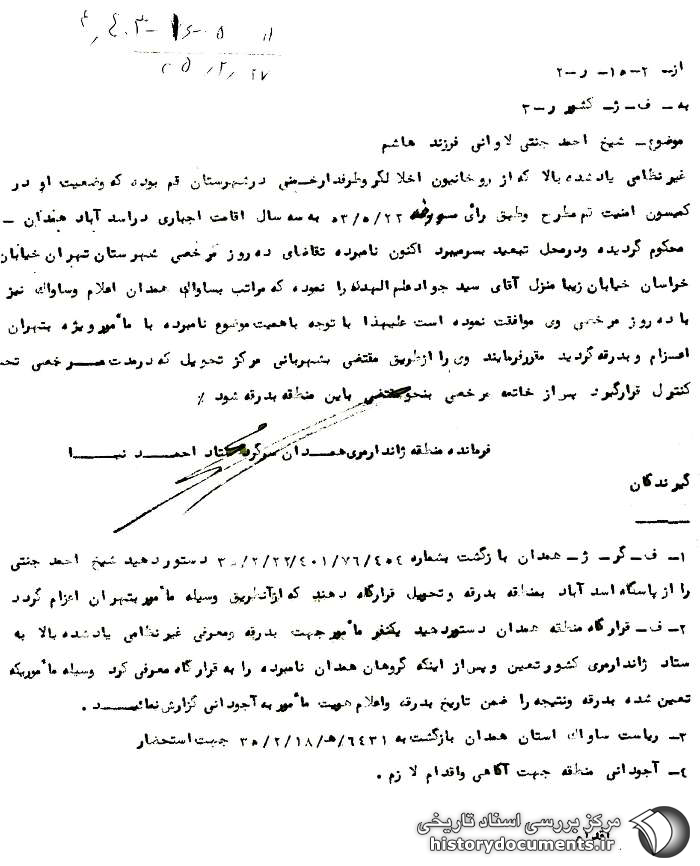 از- ۲-۱۵- ر-۲
به- ف- ژ- کشور ر-۳
موضوع- شیخ احمد جنتی لادانی فرزند هاشم
غیرنظامی یادشده بالا که از روحانیون اخلالگر و طرفدار خمینی در شهرستان قم بوده که وضعیت او در
کمیسیون امنیت قم مطرح و طبق رأی مورخه ۵۳/۵/۲۲ به سه سال اقامت اجباری در اسد آباد همدان -
محکوم گردیده و در محل تبعید بسر میبرد اکنون نامبرده تقاضای ده روز مرخصی شهرستان تهران خیابان
خراسان خیابان زیبا منزل آقای سید جواد علم الهدی را نموده که مراتب بساواک همدان اعلام و ساواک نیز
با ده روز مرخصی وی موافقت نموده است علیهذا با توجه باهمیت موضوع نامبرده با مأمور ویژه بتهران
اعزام و بدرقه گردید مقرر فرمایند وی را از طریق مقتضی بشهربانی مرکز تحویل که در مدت مرخصی تحت
کنترل قرار گیرد پس از خاتمه مرخصی بنحو مقتضی باین منطقه بدرقه شود ٪
فرمانده منطقه ژاندارمری همدان سرگرد ستاد احمد نبا
گیرندگان
۱- ف- گر- ژ- همدان بازگشت بشماره ۳۵/۲/۲۲/۴۰۱/۷۶/۴۵۴ دستور دهید شیخ احمد جنتی
را از پاسگاه اسد آباد بمنطقه بدرقه و تحویل قرارگاه دهند که از آنطریق وسیله مأمور بتهران اعزام گردد
۲- ف- قرارگاه منطقه همدان دستور دهید یکنفر مأمور جهت بدرقه و معرفی غیرنظامی یادشده بالا به
ستاد ژاندارمری کشور تعیین و پس از اینکه گروهان همدان نامبرده را به قرارگاه معرفی کرد وسیله مأموریکه
تعیین شده بدرقه و نتیجه را ضمن تاریخ بدرقه و اعلام هویت مأمور به آجودانی گزارش نمائید .
۳- ریاست ساواک استان همدان بازگشت به ۶۴۳۱/هـ/۳۵/۲/۱۸ جهت استحضار
۴- آجودانی منطقه جهت آگاهی و اقدام لازم .
مرکز بررسی اسناد تاریخی
historydocuments.ir